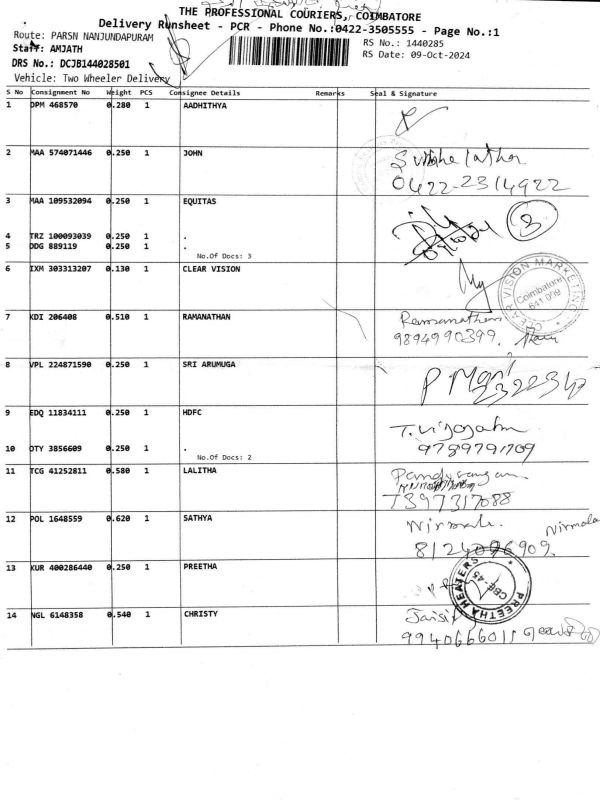 THE PROFESSIONAL COURIERS, COIMBATORE
Delivery Runsheet - PCR - Phone No.:0422-3505555 - Page No.:1
Route: PARSN NANJUNDAPURAM
RS No.: 1440285
Staff: AMJATH
RS Date: 09-Oct-2024
DRS No.: DCJB144028501
Vehicle: Two Wheeler Delivery
S No Consignment No Weight PCS Consignee Details Remarks Seal & Signature
1 DPM 468570 0.280 1 AADHITHYA
2 MAA 574071446 0.250 1 JOHN
0422-2314922
3 MAA 109532094 0.250 1 EQUITAS
3
4 TRZ 100093039 0.250 1 .
5 DDG 889119 0.250 1 .
No.Of Docs: 3
6 IXM 303313207 0.130 1 CLEAR VISION
CLEAR VISION MARKETING
Coimbatore
641 009
7 KDI 206408 0.510 1 RAMANATHAN
Ramanathan
9894990399
8 VPL 224871590 0.250 1 SRI ARUMUGA
9 EDQ 11834111 0.250 1 HDFC
9789791709
10 OTY 3856609 0.250 1 .
No.Of Docs: 2
11 TCG 41252811 0.580 1 LALITHA
Pandurangan
7397317088
12 POL 1648559 0.620 1 SATHYA
Nirmala Nirmala
8124096909
13 KUR 400286440 0.250 1 PREETHA
PREETHA HEATERS
CBE-45
14 NGL 6148358 0.540 1 CHRISTY
9940666011